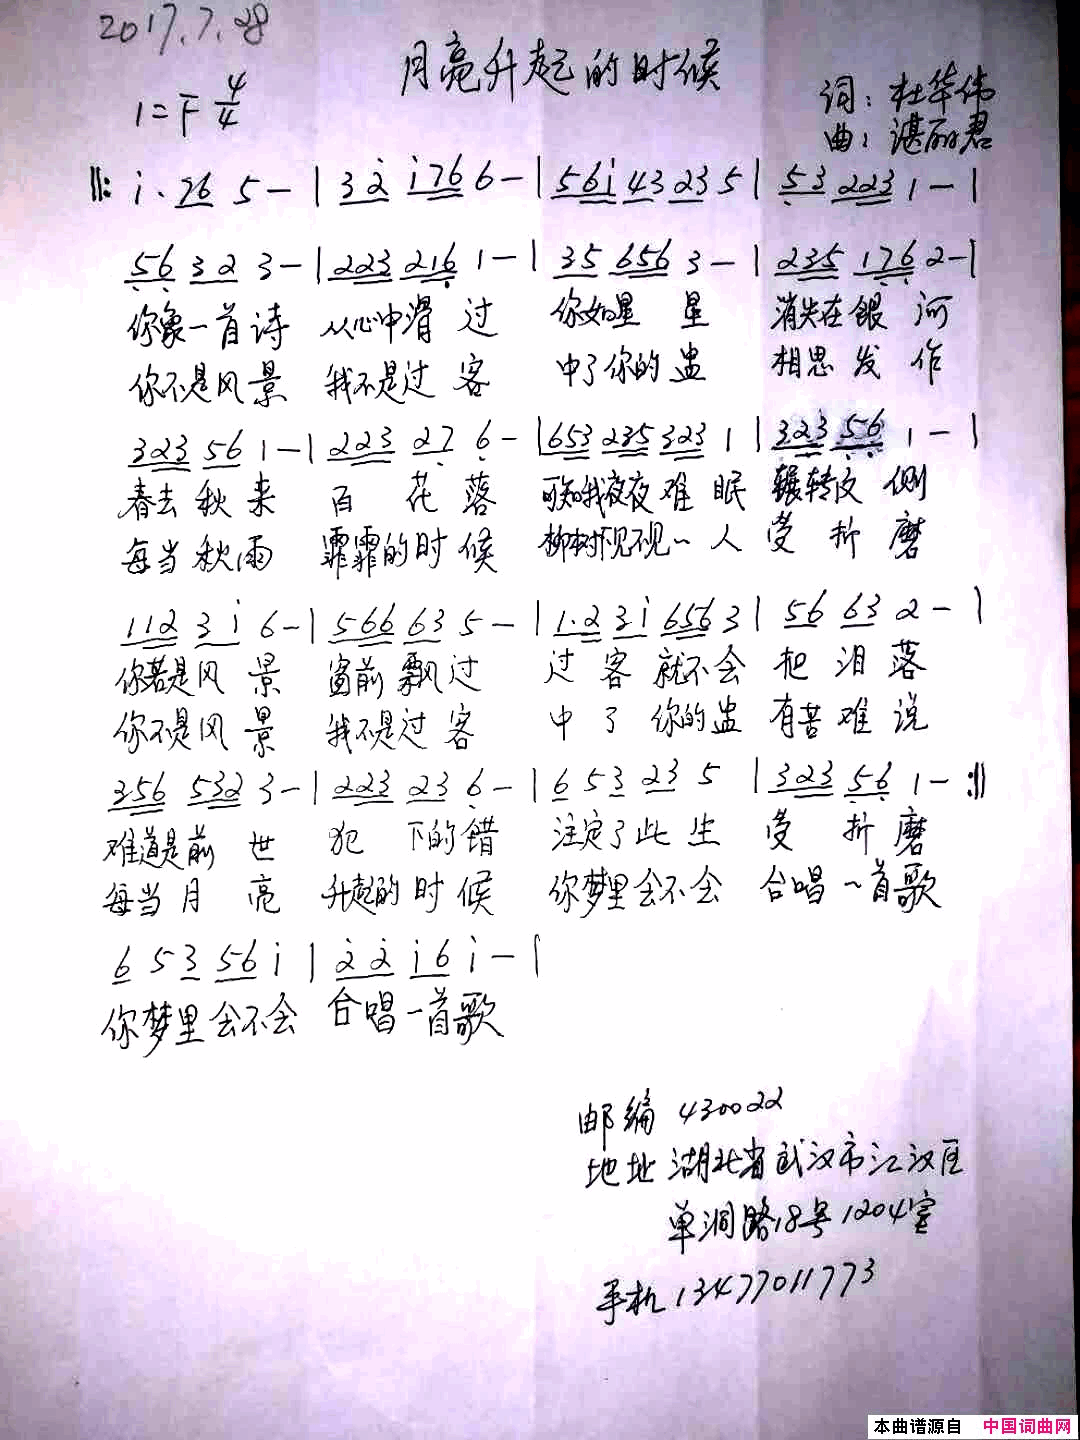 2017.7.28
月亮升起的时候
1=F 4/4
词：杜华伟
曲：湛丽君
‖: i· 76 5 - | 3 2 i76 6 - | 56i 43 23 5 | 53 223 1 - |
56 32 3 - | 223 216 1 - | 35 656 3 - | 235 176 2 - |
你象一首诗 从心中滑过 你如星星 消失在银河
你不是风景 我不是过客 中了你的蛊 相思发作
323 56 1 - | 223 27 6 - | 653 235 323 1 | 323 56 1 - |
春去秋来 百花落 可知我夜夜难眠 辗转反侧
每当秋雨 霏霏的时候 柳树不见不见一人受折磨
112 3i 6 - | 566 63 5 - | 1·2 3i 656 3 | 56 63 2 - |
你若是风景 窗前飘过 过客就不会把泪落
你不是风景 我不是过客 中了你的蛊 有苦难说
356 532 3 - | 223 23 6 - | 6 5 3 23 5 | 323 56 1 - :‖
难道是前世 犯下的错 注定了此生 受折磨
每当月亮 升起的时候 你梦里会不会 合唱一首歌
6 5 3 56 i | 2 2 i6 i - |
你梦里会不会 合唱一首歌
邮编 430022
地址 湖北省武汉市江汉区
单洞路18号1204室
手机 13477011773
本曲谱源自 中国词曲网